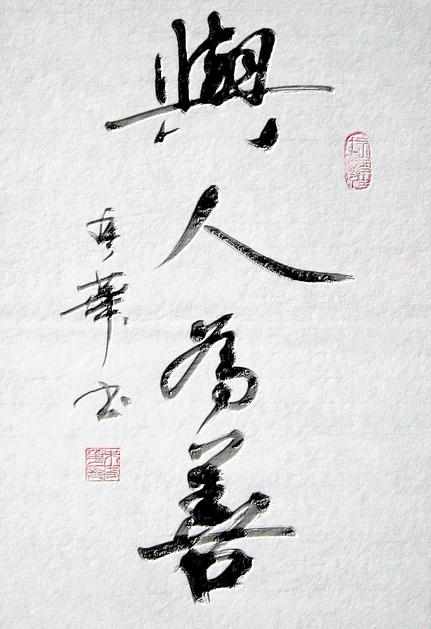 與人為善
華书